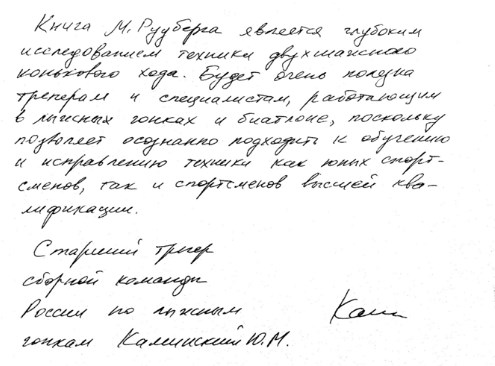 Книга М. Рууберга является глубоким
исследованием техники двухшажного
конькового хода. Будет очень полезна
тренерам и специалистам, работающим
в лыжных гонках и биатлоне, поскольку
позволяет осознанно подходить к обучению
и исправлению техники как юных спорт-
сменов, так и спортсменов высшей ква-
лификации.
Старший тренер
сборной команды
России по лыжным
гонкам Каминский Ю.М.
Кам